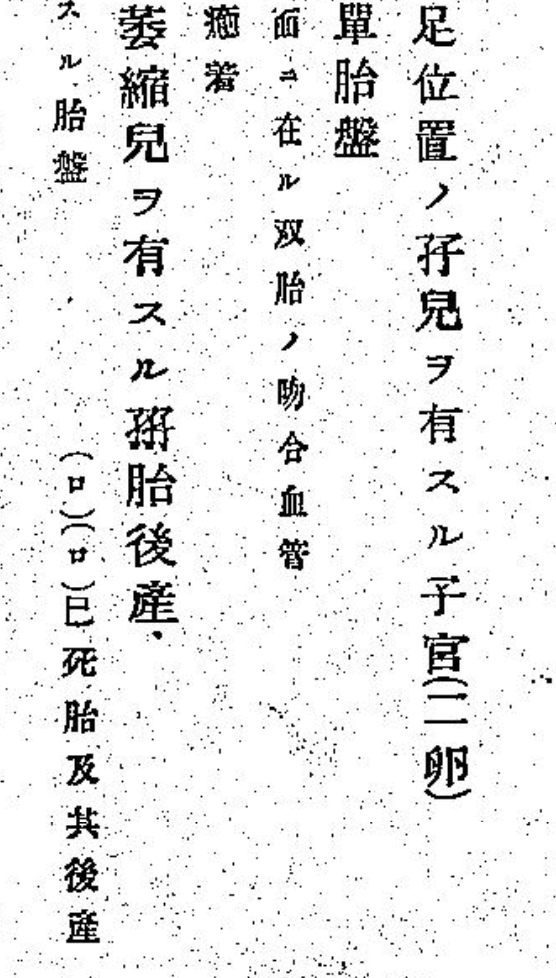 足位置ノ孖兒ヲ有スル子宮(二卵)
單胎盤
面ニ在ル双胎ノ吻合血管
癒着
萎縮兒ヲ有スル孖胎後産、
スル胎盤　(ロ)(ロ)已死胎及其後産